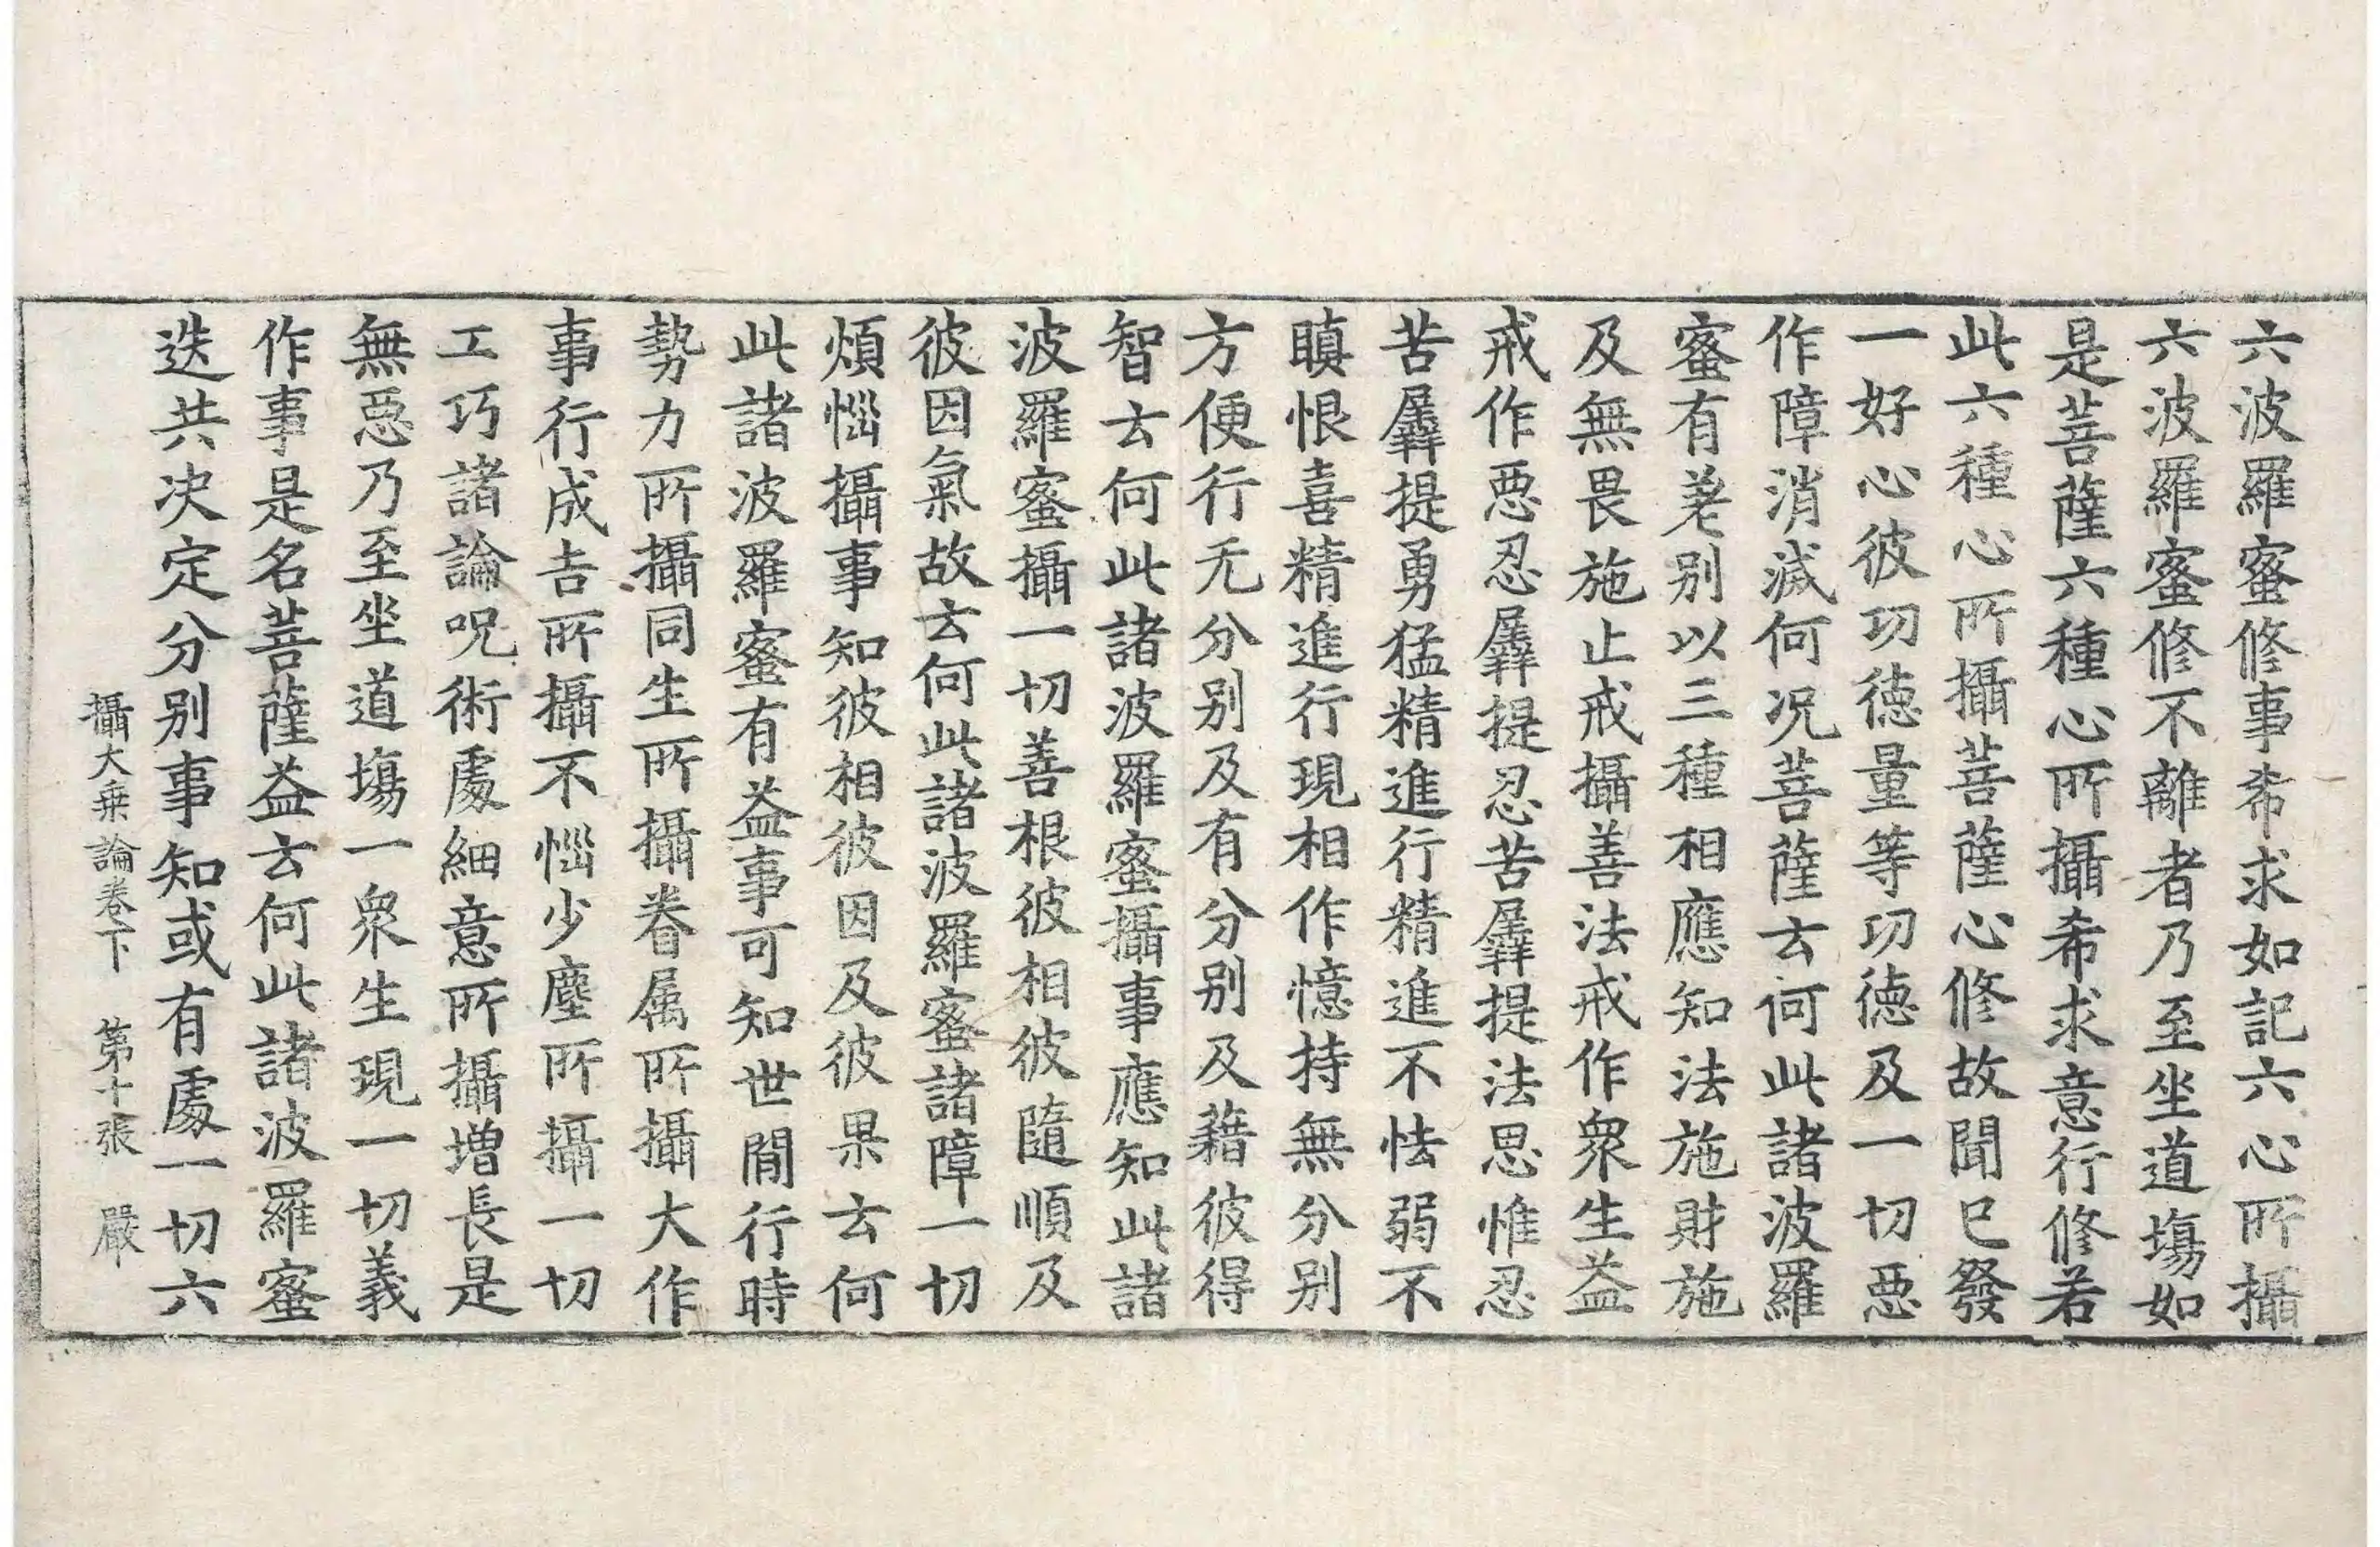 六波羅蜜修事希求如記六心所攝
六波羅蜜修不離者乃至坐道塲如
是菩薩六種心所攝希求意行修若
此六種心所攝菩薩心修故聞已發
一好心彼功德量等功德及一切惡
作障消滅何况菩薩云何此諸波羅
蜜有差别以三種相應知法施財施
及無畏施止戒攝善法戒作衆生益
戒作惡忍羼提忍苦羼提法思惟忍
苦羼提勇猛精進行精進不怯弱不
瞋恨喜精進行現相作憶持無分别
方便行无分别及有分别及藉彼得
智云何此諸波羅蜜攝事應知此諸
波羅蜜攝一切善根彼相彼隨順及
彼因氣故云何此諸波羅蜜諸障一切
煩惱攝事知彼相彼因及彼果云何
此諸波羅蜜有益事可知世間行時
勢力所攝同生所攝眷属所攝大作
事行成吉所攝不惱少塵所攝一切
工巧諸論呪術處細意所攝增長是
無惡乃至坐道塲一衆生現一切義
作事是名菩薩益云何此諸波羅蜜
迭共决定分别事知或有處一切六
攝大乗論卷下 第十張 嚴